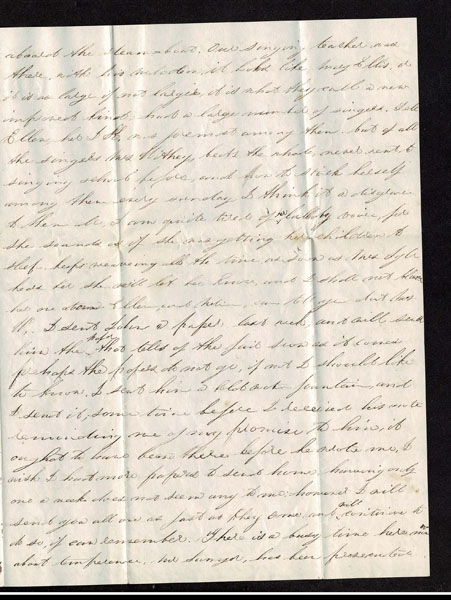 aboard the steamboat. Our singing teacher was
there, with his melodeon, it look like my Ellis, &
it is as large if not larger, it is what they call a new
improved kind, had a large number of singers. Tell
Ellen, her I H, was foremost among them. but of all
the singers Mrs W they beats the whole, never went to
sing any school before, and now th stick herself
among them every sunday I think it a disgrace
to them all, I am quite tired of lullaby voice, for
she sounds as if she was getting her children to
sleep. keeps weavering all the time, as soon as Mrs
hears her she will let her know, and I shall not
her one atom Ellen and Kate can tell you that
I sent John a paper last week, and will send
him the that tells of the fair soon as it comes
perhaps the papers do not go, if not I should like
to know, I sent him a fountain and
I sent it, some time before I received his note
reminding me of my promise to him, it
ought to have been there before he wrote me, I
wish I had more papers to send home having only
one a week does not seem any to me however I will
send you all one as fast as they come and will continue to
do so, if can remember. There is a busy time here now
about conference, Mr has been